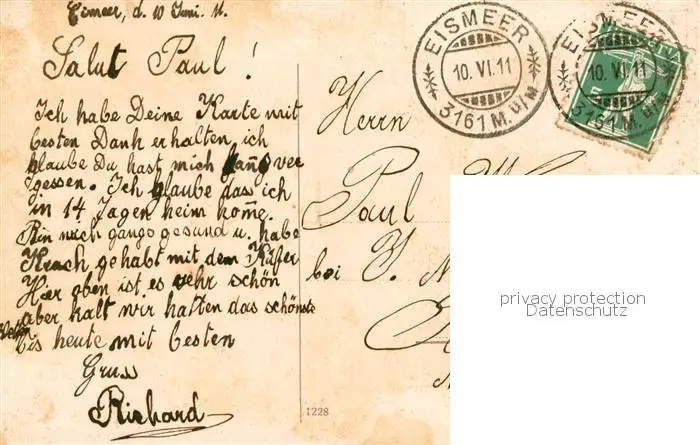 Eismeer, d. 10 Juni. 11.
Salut Paul !
Ich habe Deine Karte mit
besten Dank erhalten, ich
glaube Du hast mich ganz ver
gessen. Ich glaube dass ich
in 14 Tagen heim kom̅e.
Bin noch gangs gesund u. habe
Krach gehabt mit dem Küfer
Hier oben ist es sehr schön
aber kalt wir hatten das schönste
Wetter
bis heute mit besten
Gruss
Richard
1228
EISMEER
10. VI. 11
3161 M. ü/M
EISMEER
10. VI. 11
3161 M. ü/M
5
Herrn
Paul
bei J.
privacy protection
Datenschutz